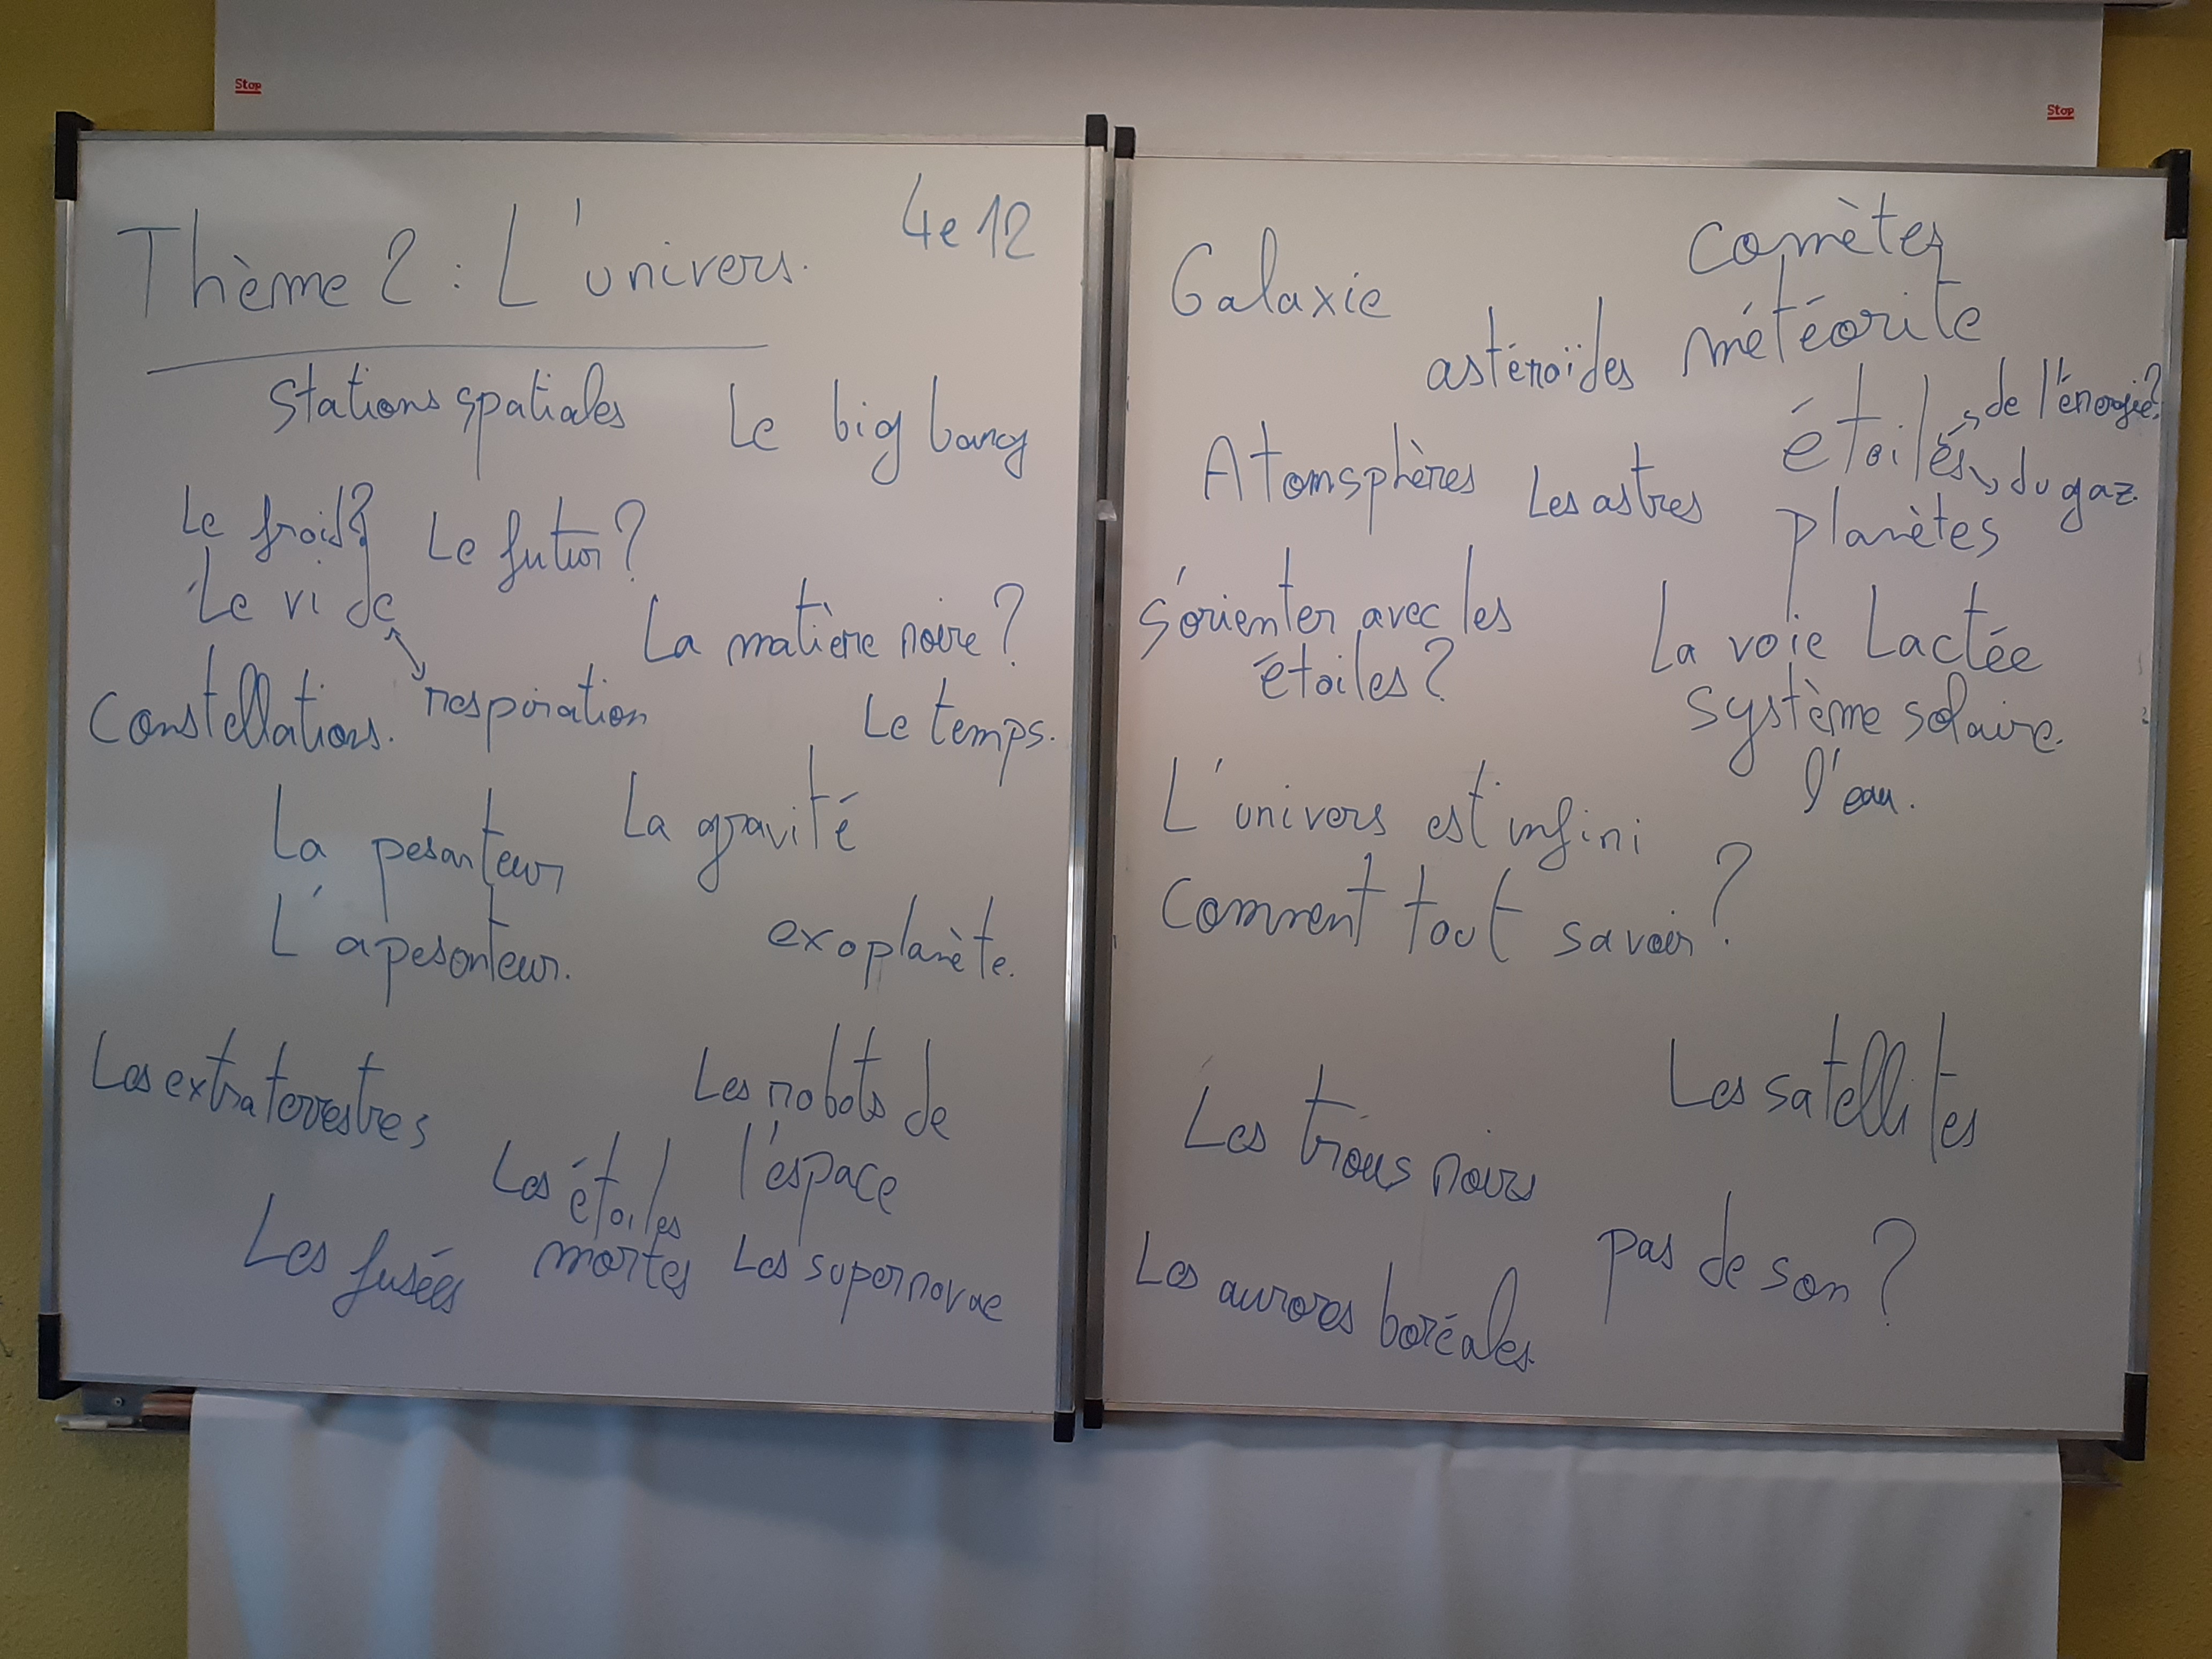 Stop
Stop
4e 12
Thème 2 : L'univers.
Stations spatiales
Le big bang
Le froid?
Le futur ?
Le vide
La matière noire ?
Constellations.
respiration
Le temps.
La pesanteur
La gravité
L'apesanteur.
exoplanète.
Les extraterrestres
Les robots de
l'espace
Les étoiles
mortes
Les fusées
Les supernovae
Galaxie
comètes
astéroïdes
météorite
étoiles
de l'énergie?
du gaz.
Atomsphères
Les astres
planètes
S'orienter avec les
étoiles ?
La voie Lactée
système solaire.
l'eau.
L'univers est infini
Comment tout savoir ?
Les satellites
Les trous noirs
pas de son ?
Les aurores boréales.